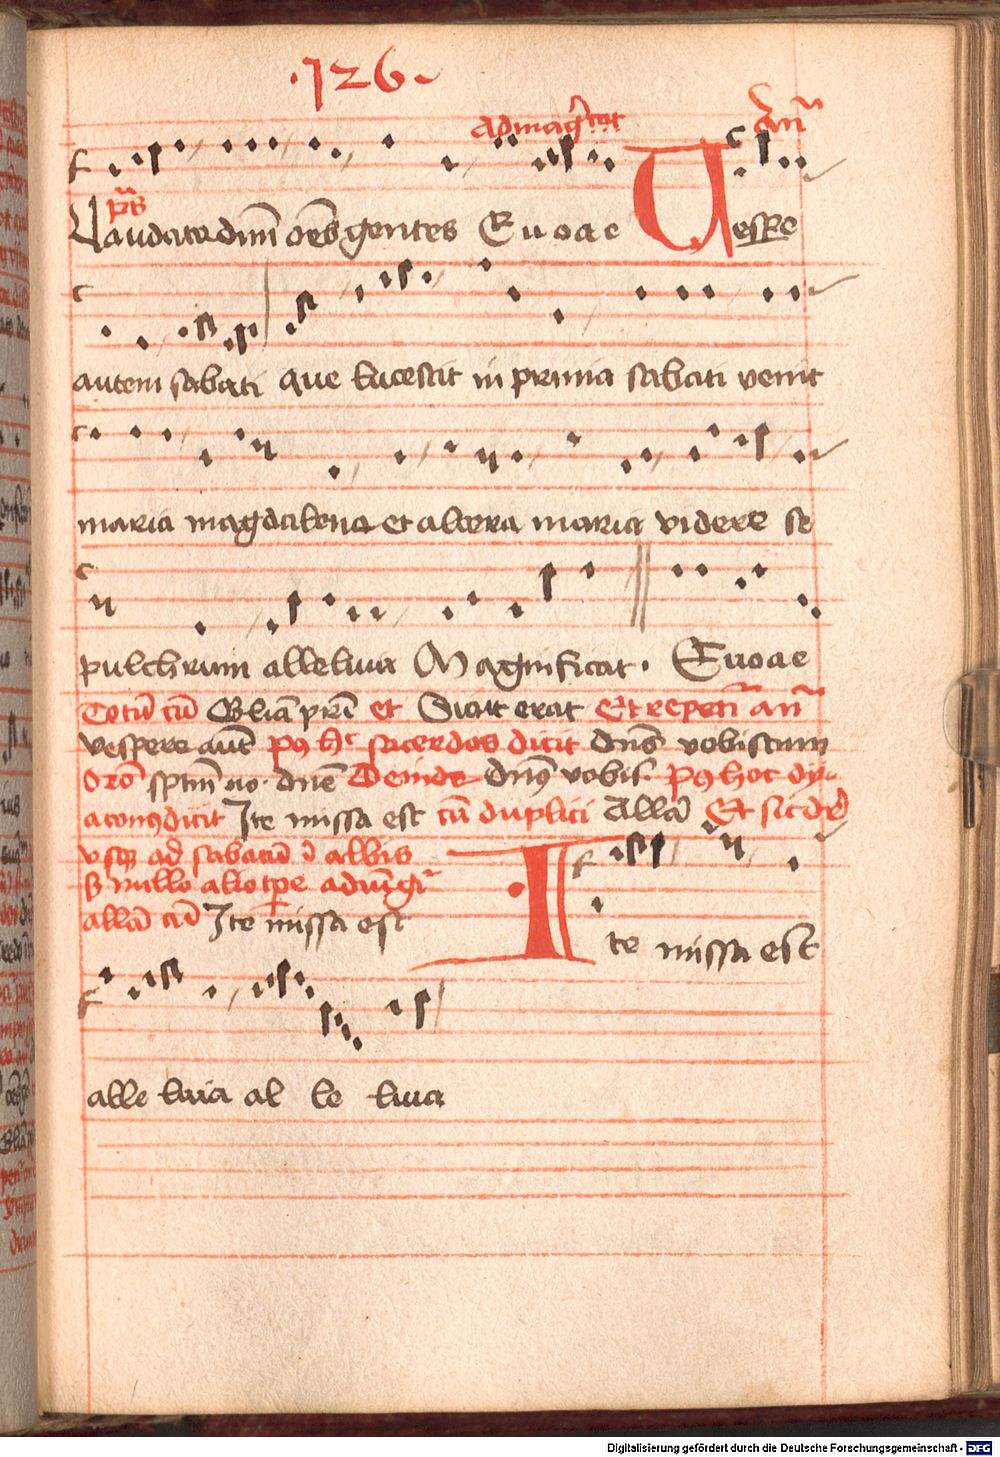 ·126·
admagͬ tꝰ añ
pͫs
Laudate dnm̄ oēs gentes Euoae Uespe
autem sabati que lucescit in prima sabati venit
maria magdalena et altera maria videre se
pulchrum alleluia Magnificat · Euoae
Totū cū Gl̄ia pr̄i et Sicut erat Et repetit̄ añ
vespere aut̄ pꝰ hͨ sacerdos dicit dn̄s vobiscum
Orō sptm̄ no· dn̄e Deinde dn̄s vobis· pꝰ hoc dy-
aconꝰ dicit Ite missa est cū duplici Allā Et sic dr̄
vsqꝫ ad sabatū ī albis
s nullo alio tꝑe adiūgit̄
allā cū Ite missa est
Ite missa est
alle luia al le luia
Digitalisierung gefördert durch die Deutsche Forschungsgemeinschaft - DFG